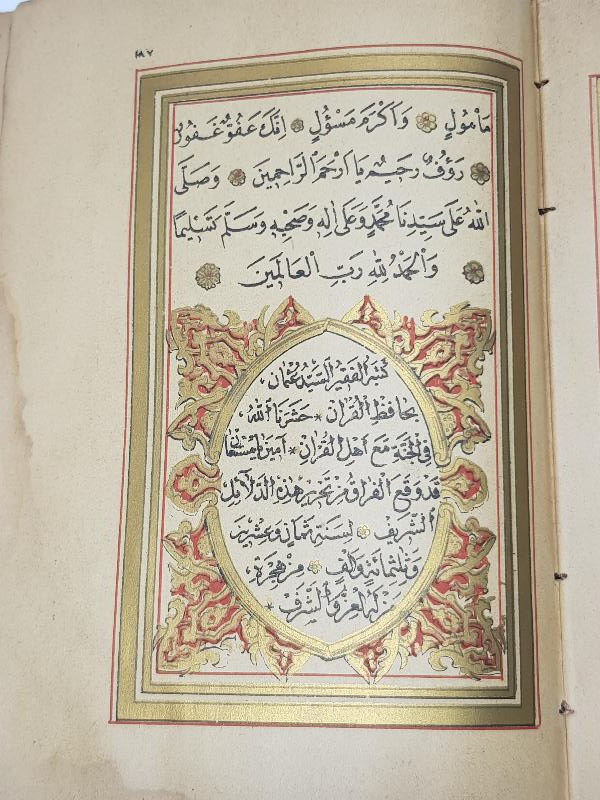 ١٨٧
مَأْمُولٍ وَاَكْرَمَ مَسْؤُلٍ اِنَّكَ عَفُوٌّ غَفُورٌ
رَؤُفٌ رَحِيمٌ يَا اَرْحَمَ الرَّاحِمِينَ وَصَلَّى
اللّٰهُ عَلَى سَيِّدِنَا مُحَمَّدٍ وَعَلَى اٰلِهِ وَصَحْبِهِ وَسَلَّمَ تَسْلِيمًا
وَالْحَمْدُ لِلّٰهِ رَبِّ الْعَالَمِينَ
الفَقِيرُ السَّيِّدُ عُثْمَان
بِحَافِظِ الْقُرْاٰنِ * حَشَرَنَا اللّٰهُ
فِي الْجَنَّةِ مَعَ اَهْلِ الْقُرْاٰنِ * اٰمِين يَا مُسْتَعَانُ
قَدْ وَقَعَ الْفَرَاقُ مِنْ تَحْرِيرِ هٰذِهِ الدَّلَائِلِ
الشَّرِيفِ لِسَنَةِ ثَمَانٍ وَعِشْرِينَ
وَثَلٰثِمِائَةٍ وَاَلْفٍ مِنْ هِجْرَةِ
مَنْ لَهُ الْعِزُّ وَالشَّرَفُ *